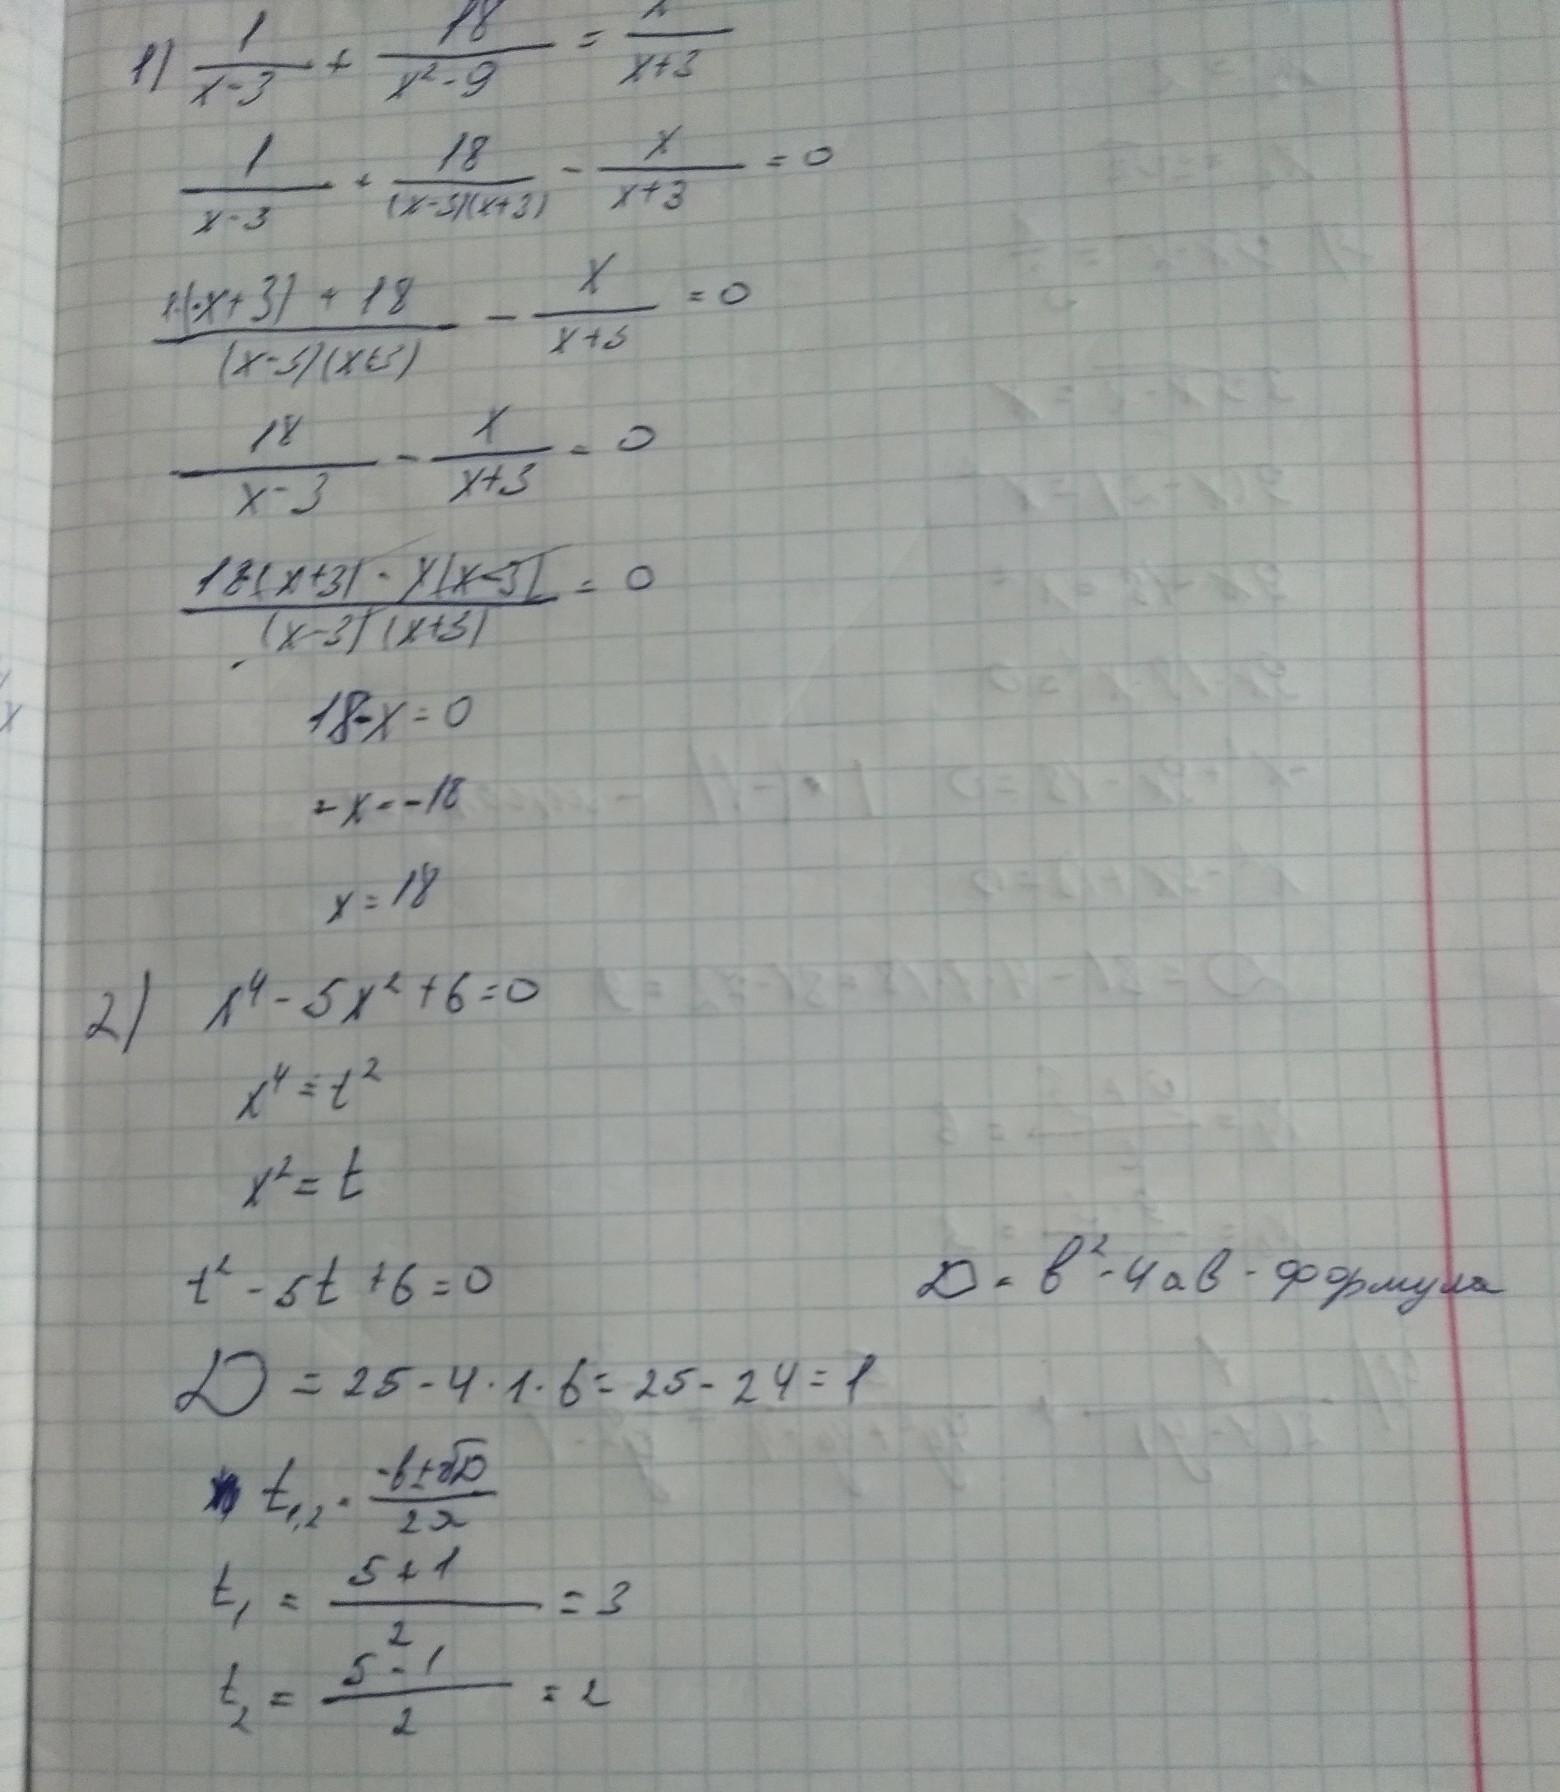 1) 1/(x-3) + 18/(x²-9) = x/(x+3)
1/(x-3) + 18/((x-3)(x+3)) - x/(x+3) = 0
(1·(x+3) + 18)/((x-3)(x+3)) - x/(x+3) = 0
18/(x-3) - x/(x+3) = 0
(18(x+3) - x(x-3))/((x-3)(x+3)) = 0
18-x=0
-x=-18
x=18
2) x⁴ - 5x² + 6 = 0
x⁴ = t²
x² = t
t² - 5t + 6 = 0
D = b² - 4ab - формула
D = 25 - 4·1·6 = 25 - 24 = 1
t₁,₂ = (-b±√D)/2a
t₁ = (5+1)/2 = 3
t₂ = (5-1)/2 = 2